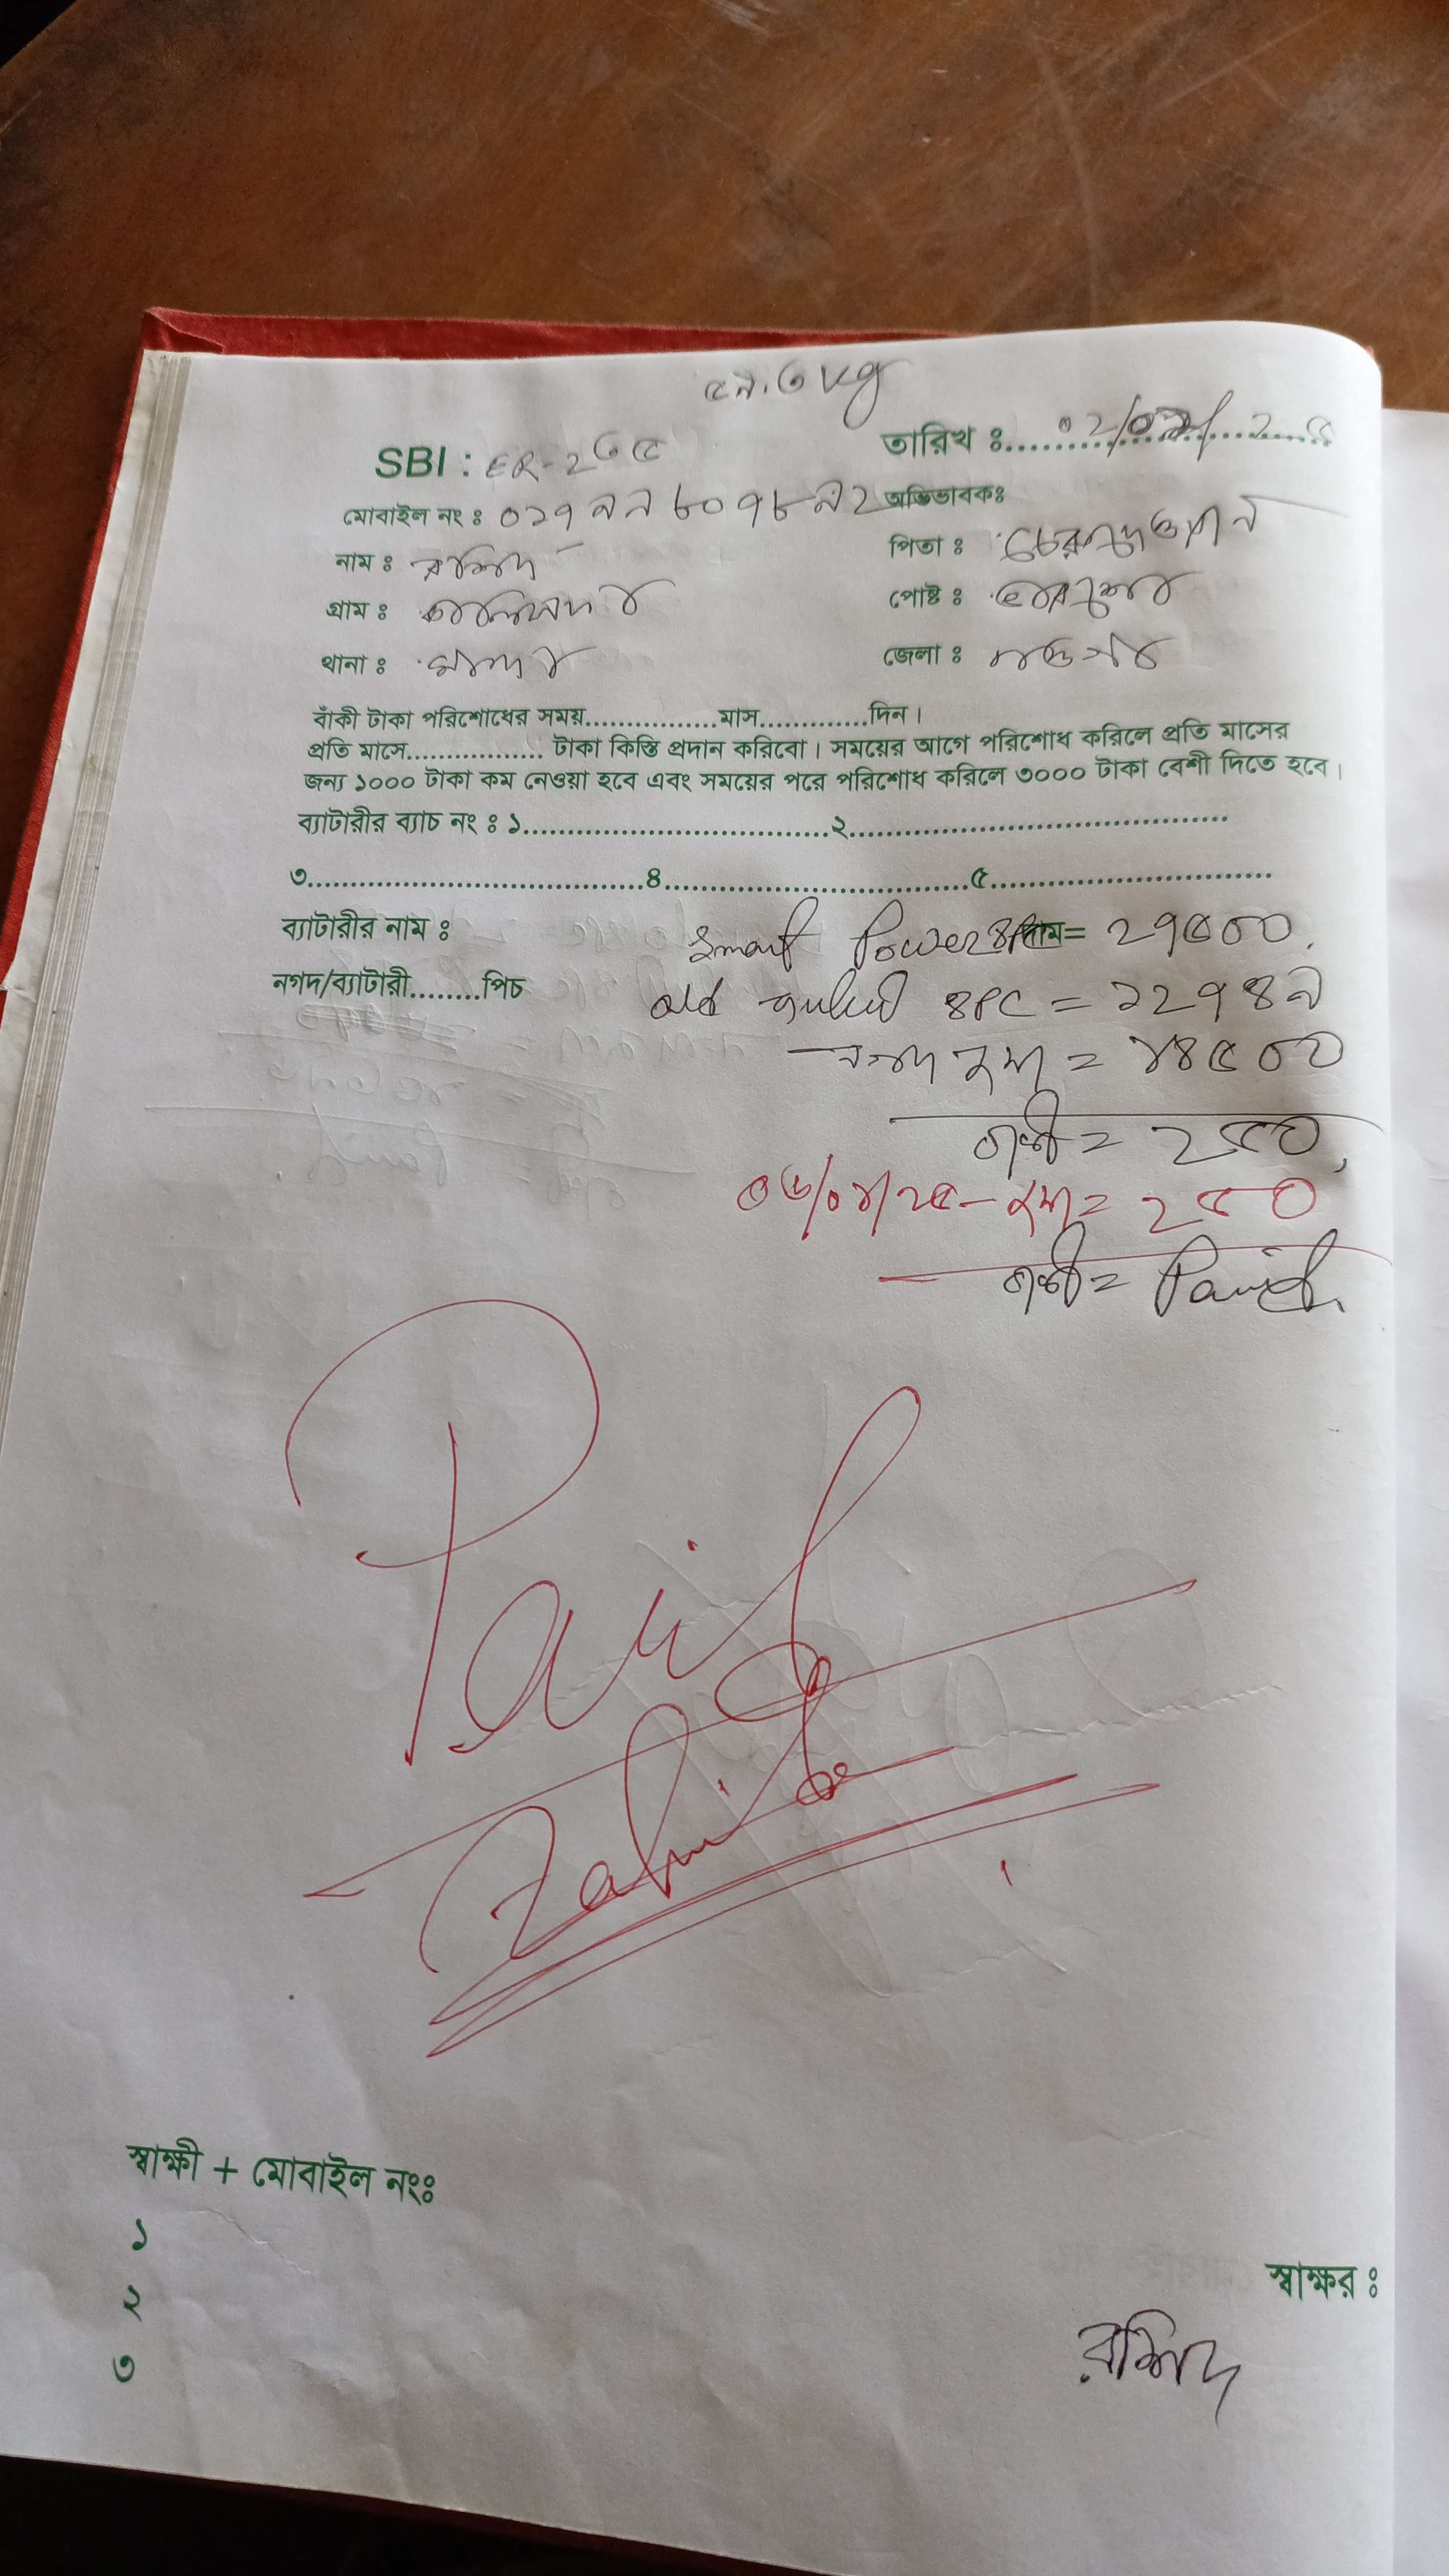 ৫৯.৩ kg
SBI : ER-2৩৫ তারিখ ঃ
মোবাইল নং ঃ ০১৭৯৯৮০৭৮৯২ অভিভাবকঃ
নাম ঃ রশিদ পিতা ঃ
গ্রাম ঃ পোষ্ট ঃ
থানা ঃ মান্দা জেলা ঃ নওগাঁ
বাঁকী টাকা পরিশোধের সময়................মাস.............দিন।
প্রতি মাসে................ টাকা কিস্তি প্রদান করিবো। সময়ের আগে পরিশোধ করিলে প্রতি মাসের
জন্য ১০০০ টাকা কম নেওয়া হবে এবং সময়ের পরে পরিশোধ করিলে ৩০০০ টাকা বেশী দিতে হবে।
ব্যাটারীর ব্যাচ নং ঃ ১.................................২.........................................
৩........................................৪.................................৫...............................
ব্যাটারীর নাম ঃ Smart Power ৪PC দাম= ২৭৫০০
নগদ/ব্যাটারী........পিচ old ৪PC = ১২৭৪৯
নগদ জমা = ১৪৫০০
বাকী = ২৫০
জমা = ২৫০
বাকী = Paid
Paid
স্বাক্ষী + মোবাইল নংঃ
১
২
৩
স্বাক্ষর ঃ
রশিদ